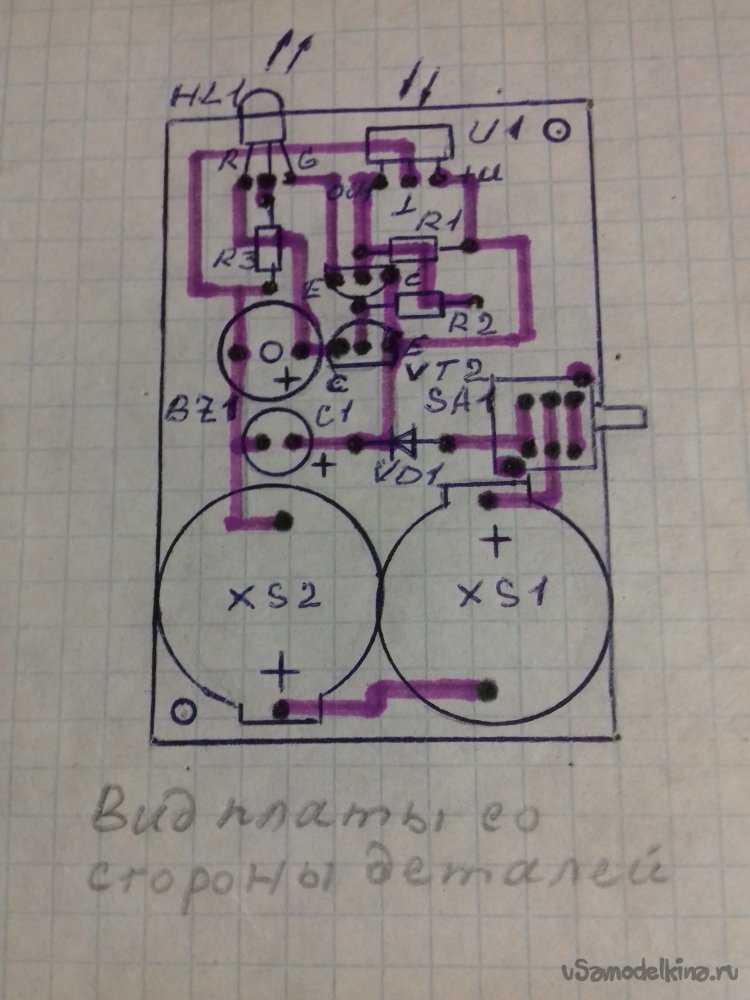 HL1
U1
R G
OUT ⊥ +U
R1
R3
E C
R2
C E
VT2
BZ1 + C1 SA1
+ VD1
+
XS2 XS1
+
Вид платы со
стороны деталей
uSamodelkina.ru